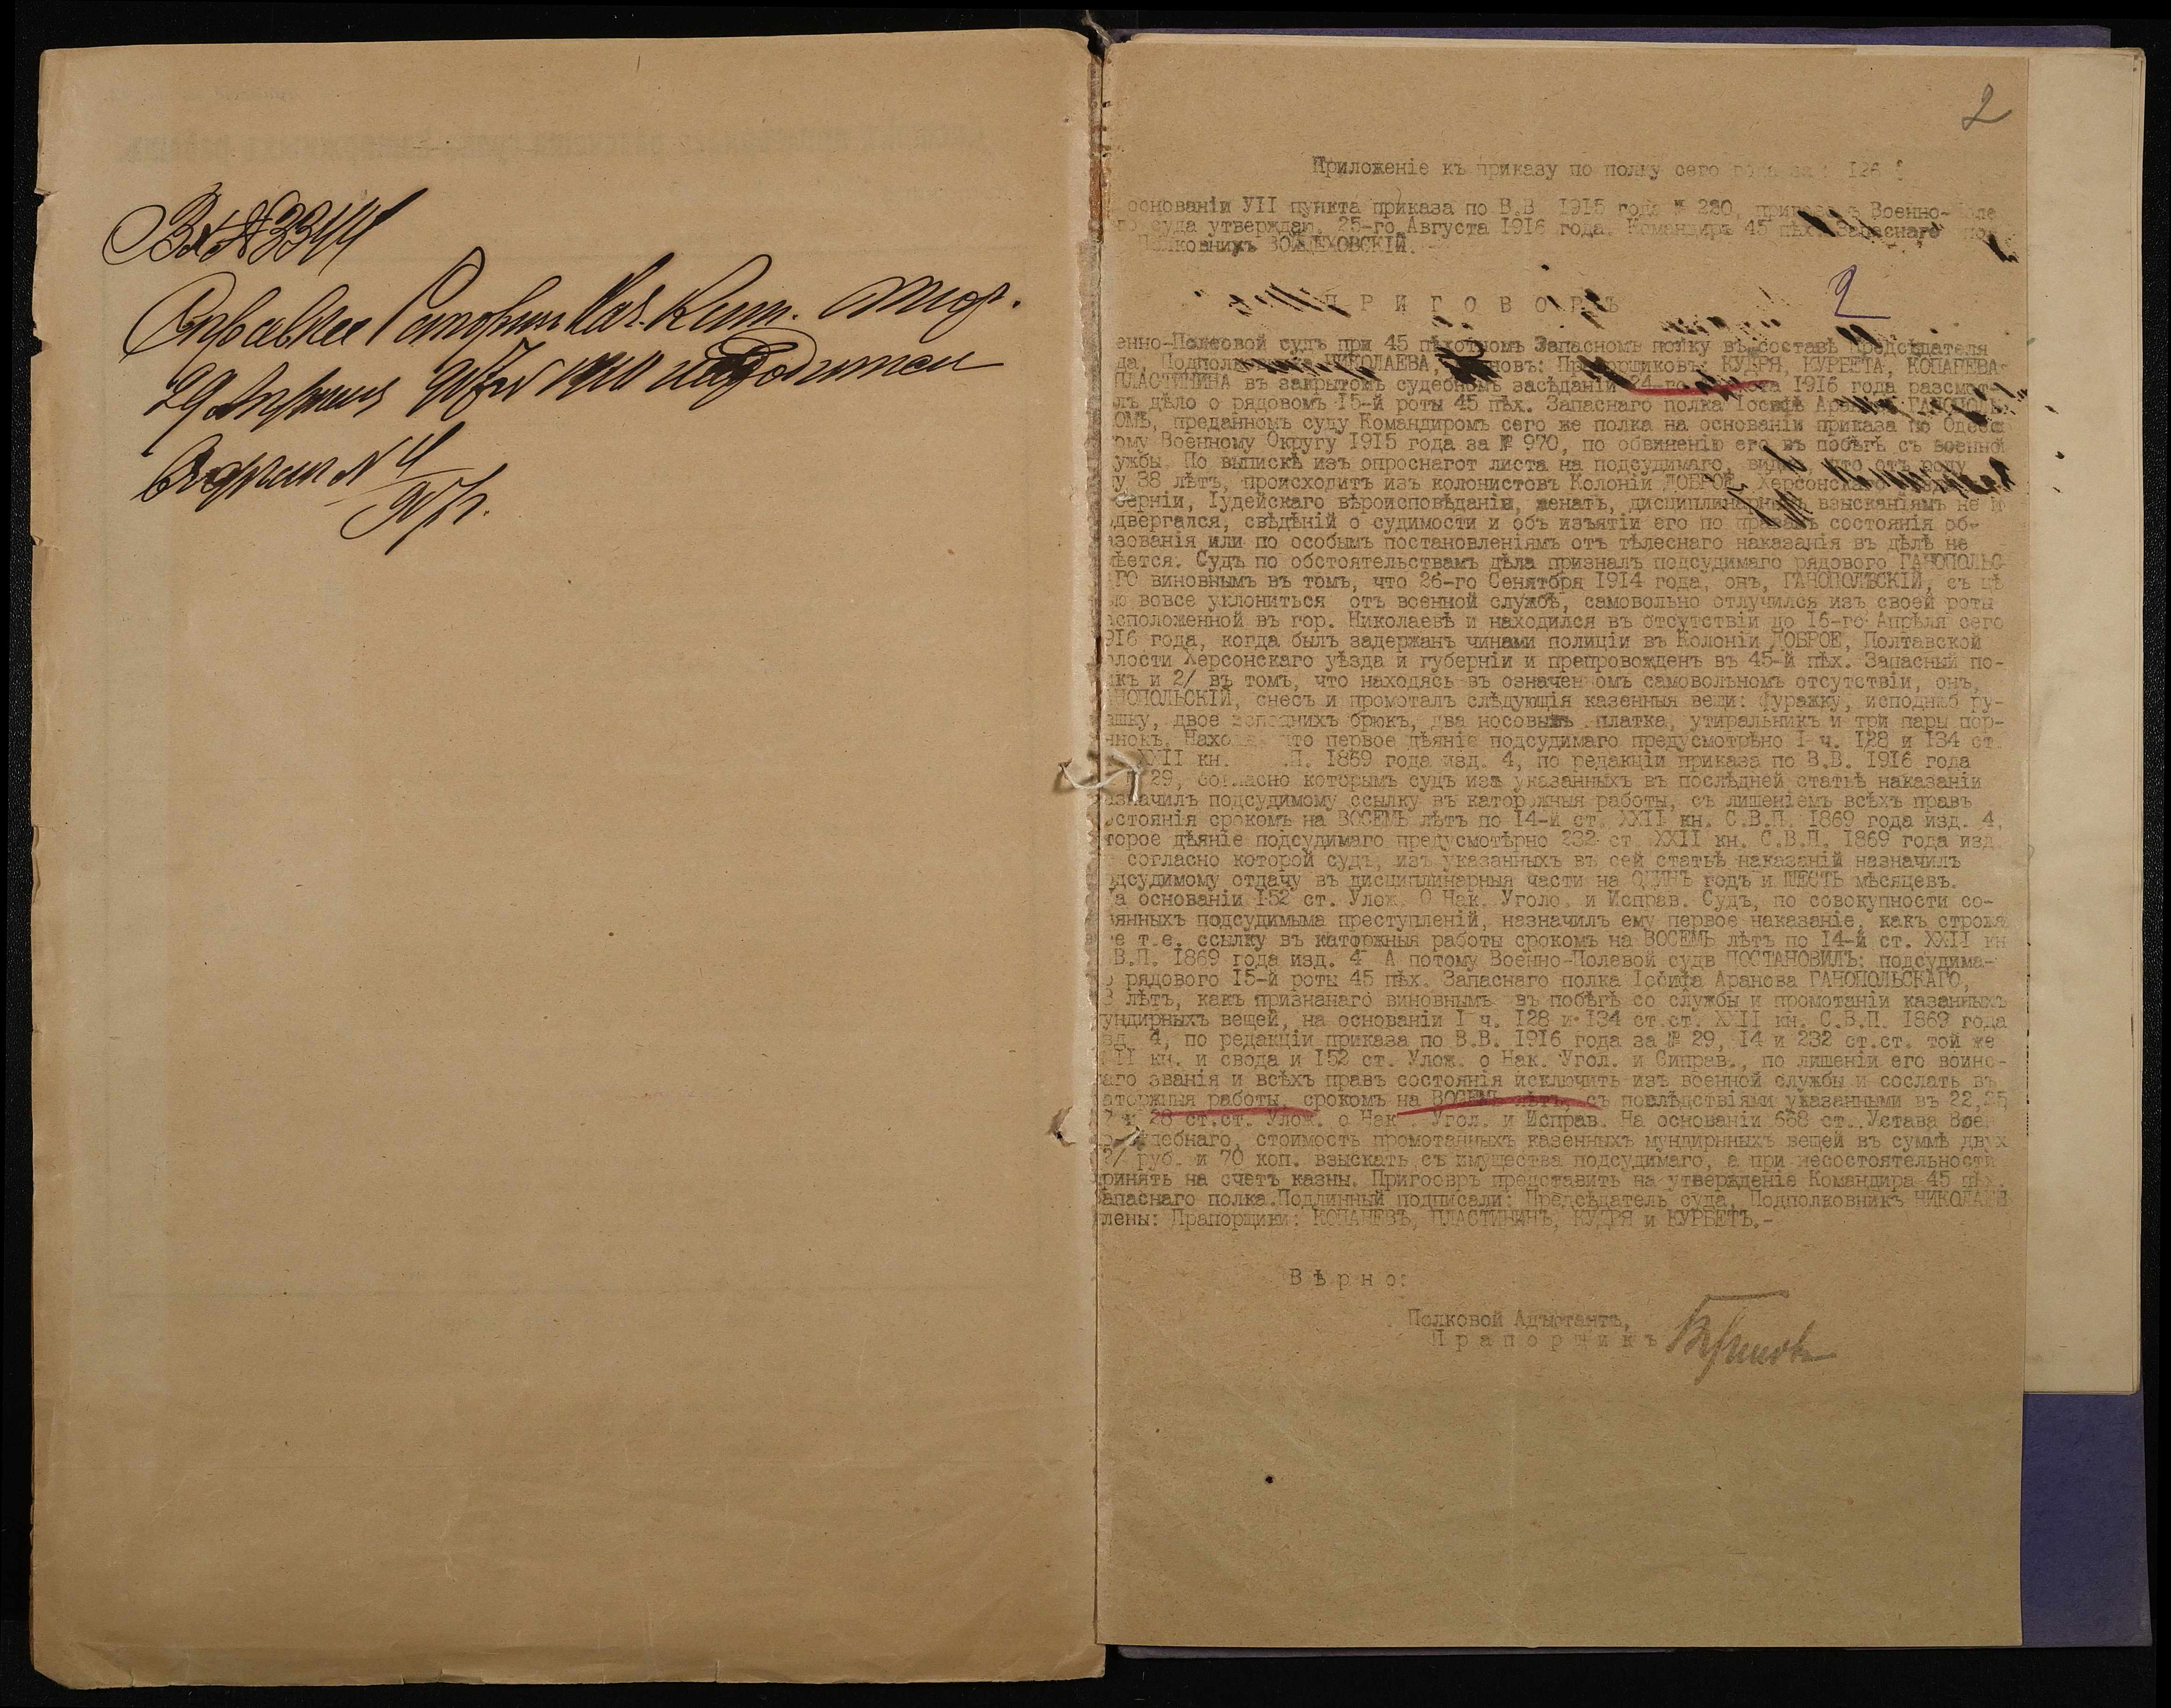 Вх №3344
29 Апреля
№ 4
2
Приложеніе къ приказу по полку сего года за 126
основаніи УІІ пункта приказа по В.В 1915 года № 220, Военно-
суда утверждаю. 25-го Августа 1916 года. Командиръ 45 пѣх. Запаснаго
Полковникъ
2
П Р И Г О В О Р Ъ
енно-Полевой судъ при 45 пѣхотномъ Запасномъ полку въ составѣ Предсѣдателя
да, НИКОЛАЕВА, Прапорщиковъ: КУДРЯ, КУРБЕТА, КОПАНЕВА
ПЛАСТИНИНА въ закрытомъ судебномъ засѣданіи 24-го 1916 года разсмот-
лъ дѣло о рядовомъ 15-й роты 45 пѣх. Запаснаго полка Іосифѣ ГАНОПОЛЬ
ОМЪ, преданномъ суду Командиромъ сего же полка на основаніи приказа по Одесс
ому Военному Округу 1915 года за № 970, по обвиненію его въ побѣгѣ съ военной
ужбы. По выпискѣ изъ опроснагот листа на подсудимаго, что отъ роду
у 38 лѣтъ, происходитъ изъ колонистовъ Колоніи ДОБРОЕ, Херсонскаго
берніи, Іудейскаго вѣроисповѣданія, женатъ, дисциплинарнымъ взысканіямъ не п
двергался, свѣдѣній о судимости и объ изъятіи его по правамъ состоянія об-
азованія или по особымъ постановленіямъ отъ тѣлеснаго наказанія въ дѣлѣ не
мѣется. Судъ по обстоятельствамъ дѣла призналъ подсудимаго рядового ГАНОПОЛЬС-
ГО виновнымъ въ томъ, что 26-го Сенятбря 1914 года, онъ, ГАНОПОЛЬСКІЙ, съ цѣ
ю вовсе уклониться отъ военной службѣ, самовольно отлучился изъ своей роты
асположенной въ гор. Николаевѣ и находился въ отсутствіи до 16-го Апрѣля сего
916 года, когда былъ задержанъ чинами полиціи въ Колоніи ДОБРОЕ, Полтавской
лости Херсонскаго уѣзда и губерніи и препровожденъ въ 45-й пѣх. Запасный по-
лкъ и 2/ въ томъ, что находясь въ означенномъ самовольномъ отсутствіи, онъ,
НОПОЛЬСКІЙ, снесъ и промоталъ слѣдующія казенныя вещи: фуражку, исподнюю ру-
ашку, двое исподнихъ брюкъ, два носовыхъ платка, утиральникъ и три пары пор-
нокъ. Находя, что первое дѣяніе подсудимаго предусмотрѣно І ч. 128 и 134 ст.
XXII кн. .П. 1869 года изд. 4, по редакціи приказа по В.В. 1916 года
29, согласно которымъ судъ изъ указанныхъ въ послѣдней статьѣ наказаніи
азначилъ подсудимому ссылку въ каторжныя работы, съ лишеніемъ всѣхъ правъ
остоянія срокомъ на ВОСЕМЬ лѣтъ по 14-й ст. XXII кн. С.В.П. 1869 года изд. 4,
торое дѣяніе подсудимаго предусмотѣрно 232 ст. XXII кн. С.В.П. 1869 года изд.
согласно которой судъ, изъ указанныхъ въ сей статьѣ наказаній назначилъ
одсудимому отдачу въ дисциплинарныя части на ОДИНЪ годъ и ШЕСТЬ мѣсяцевъ.
а основаніи 152 ст. Улож. О Нак. Уголо. и Исправ. Судъ, по совокупности со-
янныхъ подсудимыма преступленій, назначилъ ему первое наказаніе, какъ строжа
е т.е. ссылку въ каторжныя работы срокомъ на ВОСЕМЬ лѣтъ по 14-й ст. XXII кн
В.П. 1869 года изд. 4 А потому Военно-Полевой судъ ПОСТАНОВИЛЪ: подсудима-
о рядового 15-й роты 45 пѣх. Запаснаго полка Іосифа Аранова ГАНОПОЛЬСКАГО,
8 лѣтъ, какъ признанаго виновнымъ въ побѣгѣ со службы и промотаніи казанныхъ
ундирныхъ вещей, на основаніи І ч. 128 и 134 ст.ст. XXII кн. С.В.П. 1869 года
зд. 4, по редакціи приказа по В.В. 1916 года за № 29, 14 и 232 ст.ст. той же
II кн. и свода и 152 ст. Улож. о Нак. Угол. и Сиправ., по лишеніи его воинс-
аго званія и всѣхъ правъ состоянія исключить изъ военной службы и сослать въ
аторжныя работы, срокомъ на ВОСЕМЬ лѣтъ, съ послѣдствіями указанными въ 22,25
и 28 ст.ст. Улож. о Нак. Угол. и Исправ. На основаніи 638 ст. Устава Воен
судебнаго, стоимость промотанныхъ казенныхъ мундирнныхъ вещей въ суммѣ двух
2/ руб. и 70 коп. взыскать съ имущества подсудимаго, а при несостоятельности
ринять на счетъ казны. Пригоовръ представить на утвержденіе Командира 45 пѣх.
апаснаго полка.Подлинный подписали: Предсѣдатель суда, Подполковникъ НИКОЛАЕВ
лены: Прапорщики: КОПАНЕВЪ, ПЛАСТИНИНЪ, КУДРЯ и КУРБЕТЪ.-
В ѣ р н о:
Полковой Адъютантъ,
П р а п о р щ и к ъ